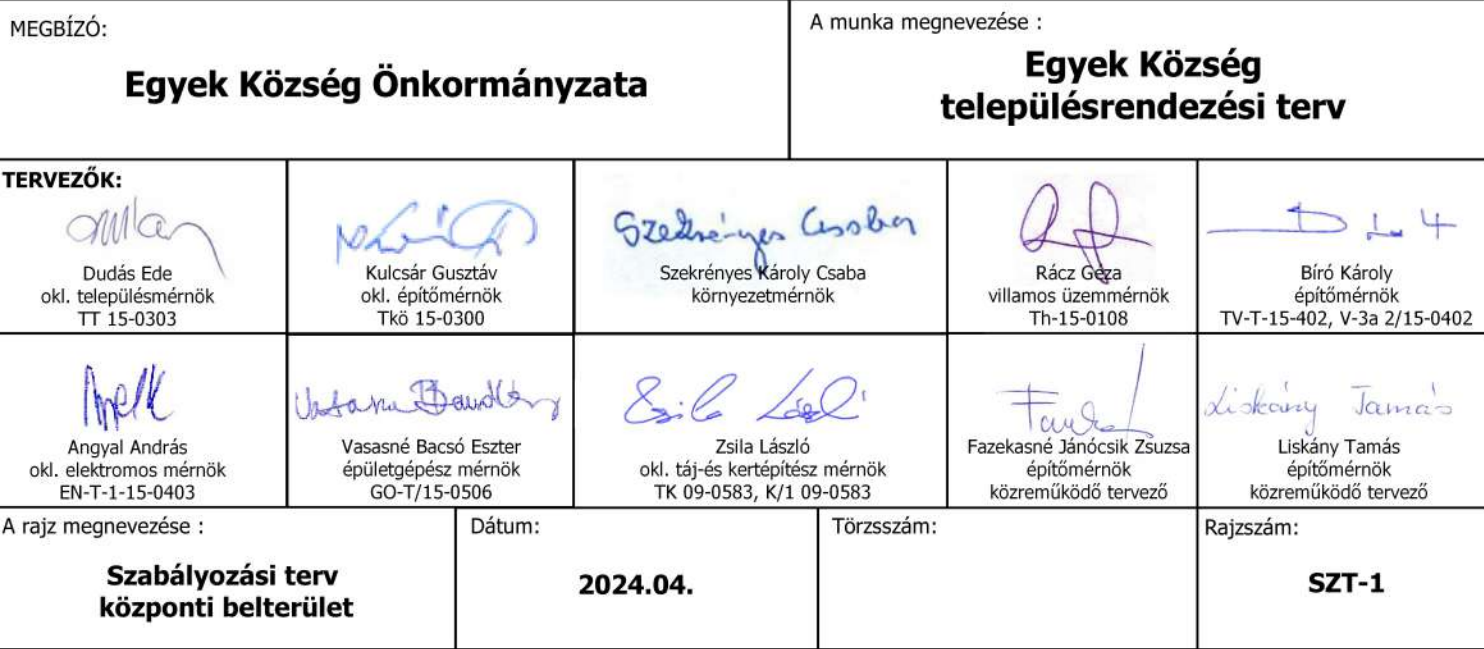 MEGBÍZÓ:
Egyek Község Önkormányzata
A munka megnevezése :
Egyek Község
településrendezési terv
TERVEZŐK:
Dudás Ede
okl. településmérnök
TT 15-0303
Kulcsár Gusztáv
okl. építőmérnök
Tkö 15-0300
Szekrényes Csaba
Szekrényes Károly Csaba
környezetmérnök
Rácz Géza
villamos üzemmérnök
Th-15-0108
Bíró Károly
építőmérnök
TV-T-15-402, V-3a 2/15-0402
Angyal András
okl. elektromos mérnök
EN-T-1-15-0403
Vasasné Bacsó Eszter
épületgépész mérnök
GO-T/15-0506
Zsila László
Zsila László
okl. táj-és kertépítész mérnök
TK 09-0583, K/1 09-0583
Fazekasné Jánócsik Zsuzsa
építőmérnök
közreműködő tervező
Liskány Tamás
Liskány Tamás
építőmérnök
közreműködő tervező
A rajz megnevezése :
Szabályozási terv
központi belterület
Dátum:
2024.04.
Törzsszám:
Rajzszám:
SZT-1